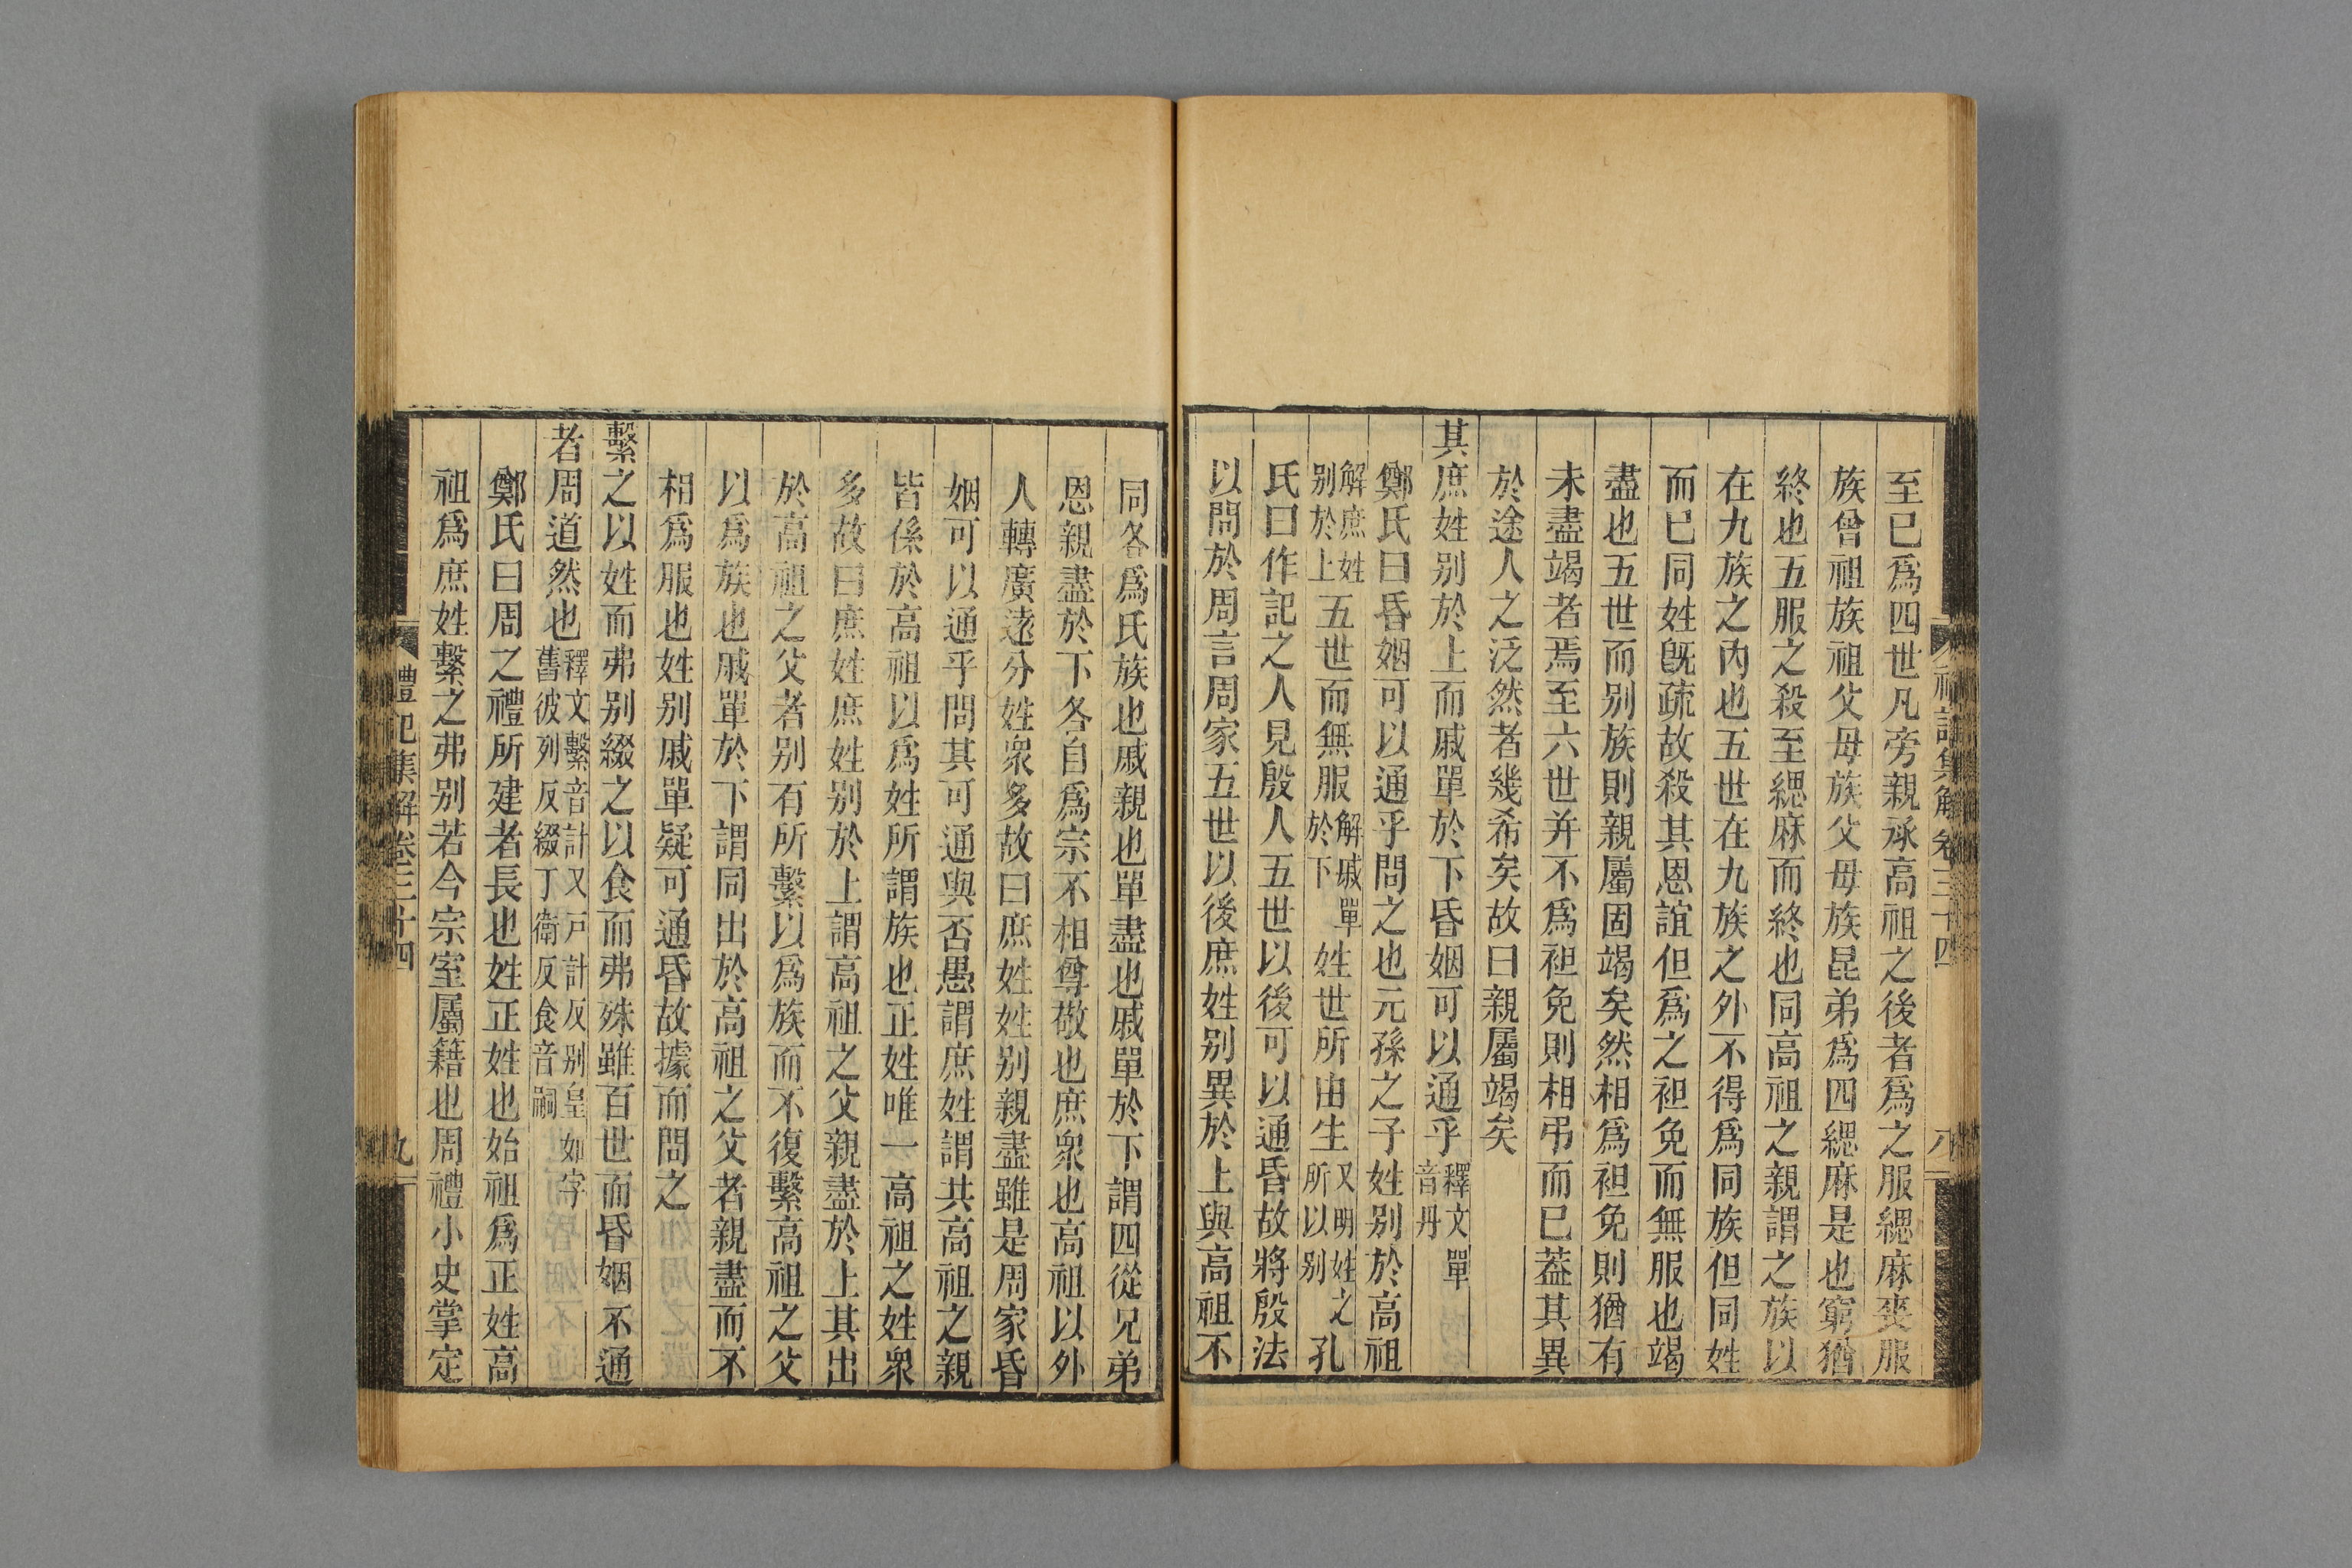 至已爲四世凡旁親承高祖之後者爲之服緦麻喪服
族曾祖族祖父母族父母族昆弟爲四緦麻是也窮猶
終也五服之殺至緦麻而終也同高祖之親謂之族以
在九族之內也五世在九族之外不得爲同族但同姓
而已同姓旣疏故殺其恩誼但爲之袒免而無服也竭
盡也五世而别族則親屬固竭矣然相爲袒免則猶有
未盡竭者焉至六世并不爲袒免則相弔而已葢其異
於途人之泛然者幾希矣故曰親屬竭矣
其庶姓别於上而戚單於下昏姻可以通乎釋文單音丹
鄭氏曰昏姻可以通乎問之也元孫之子姓别於高祖
解庶姓别於上五世而無服解戚單於下姓世所由生又明姓之所以别孔
氏曰作記之人見殷人五世以後可以通昏故將殷法
以問於周言周家五世以後庶姓别異於上與高祖不
同各爲氏族也戚親也單盡也戚單於下謂四從兄弟
恩親盡於下各自爲宗不相尊敬也庶衆也高祖以外
人轉廣遠分姓衆多故曰庶姓姓别親盡雖是周家昏
姻可以通乎問其可通與否愚謂庶姓謂共高祖之親
皆係於高祖以爲姓所謂族也正姓唯一高祖之姓衆
多故曰庶姓庶姓别於上謂高祖之父親盡於上其出
於高祖之父者别有所繫以爲族而不復繫高祖之父
以爲族也戚單於下謂同出於高祖之父者親盡而不
相爲服也姓别戚單疑可通昏故據而問之
繫之以姓而弗别綴之以食而弗殊雖百世而昏姻不通
者周道然也釋文繫音計又戶計反别皇如字舊彼列反綴丁衛反食音嗣
鄭氏曰周之禮所建者長也姓正姓也始祖爲正姓高
祖爲庶姓繫之弗别若今宗室屬籍也周禮小史掌定
禮記集解卷三十四
九